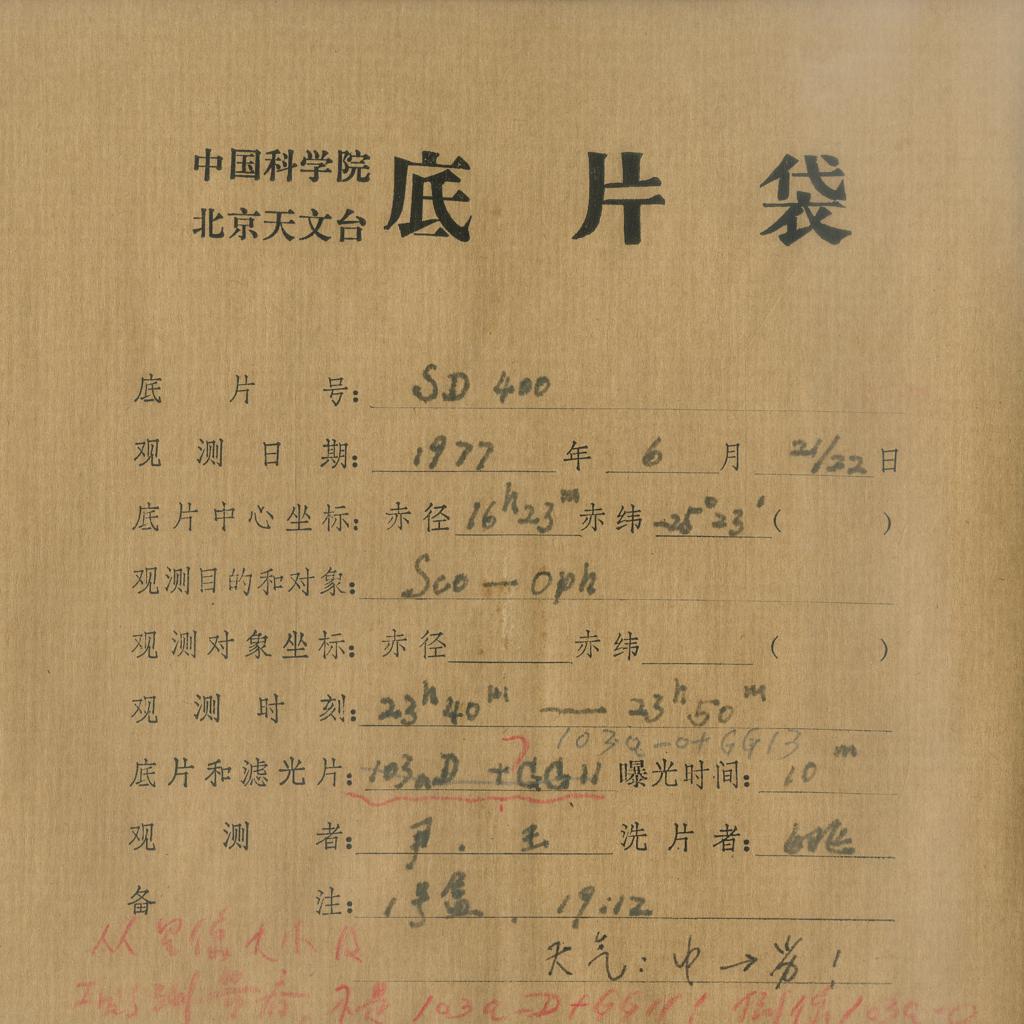 中国科学院
北京天文台
底片袋
底片号：SD 400
观测日期：1977年6月21/22日
底片中心坐标：赤径16h23m赤纬-25°23′（ ）
观测目的和对象：Sco — Oph
观测对象坐标：赤径 赤纬 （ ）
观测时刻：23h40m — 23h50m
103a-o+GG13
底片和滤光片：103aD +GG11 曝光时间：10m
观测者：尹.王 洗片者：
备注：1号盒. 19:12
从星像大小及
天气：中→劣！
不是103a-D+GG11！ 103a-O